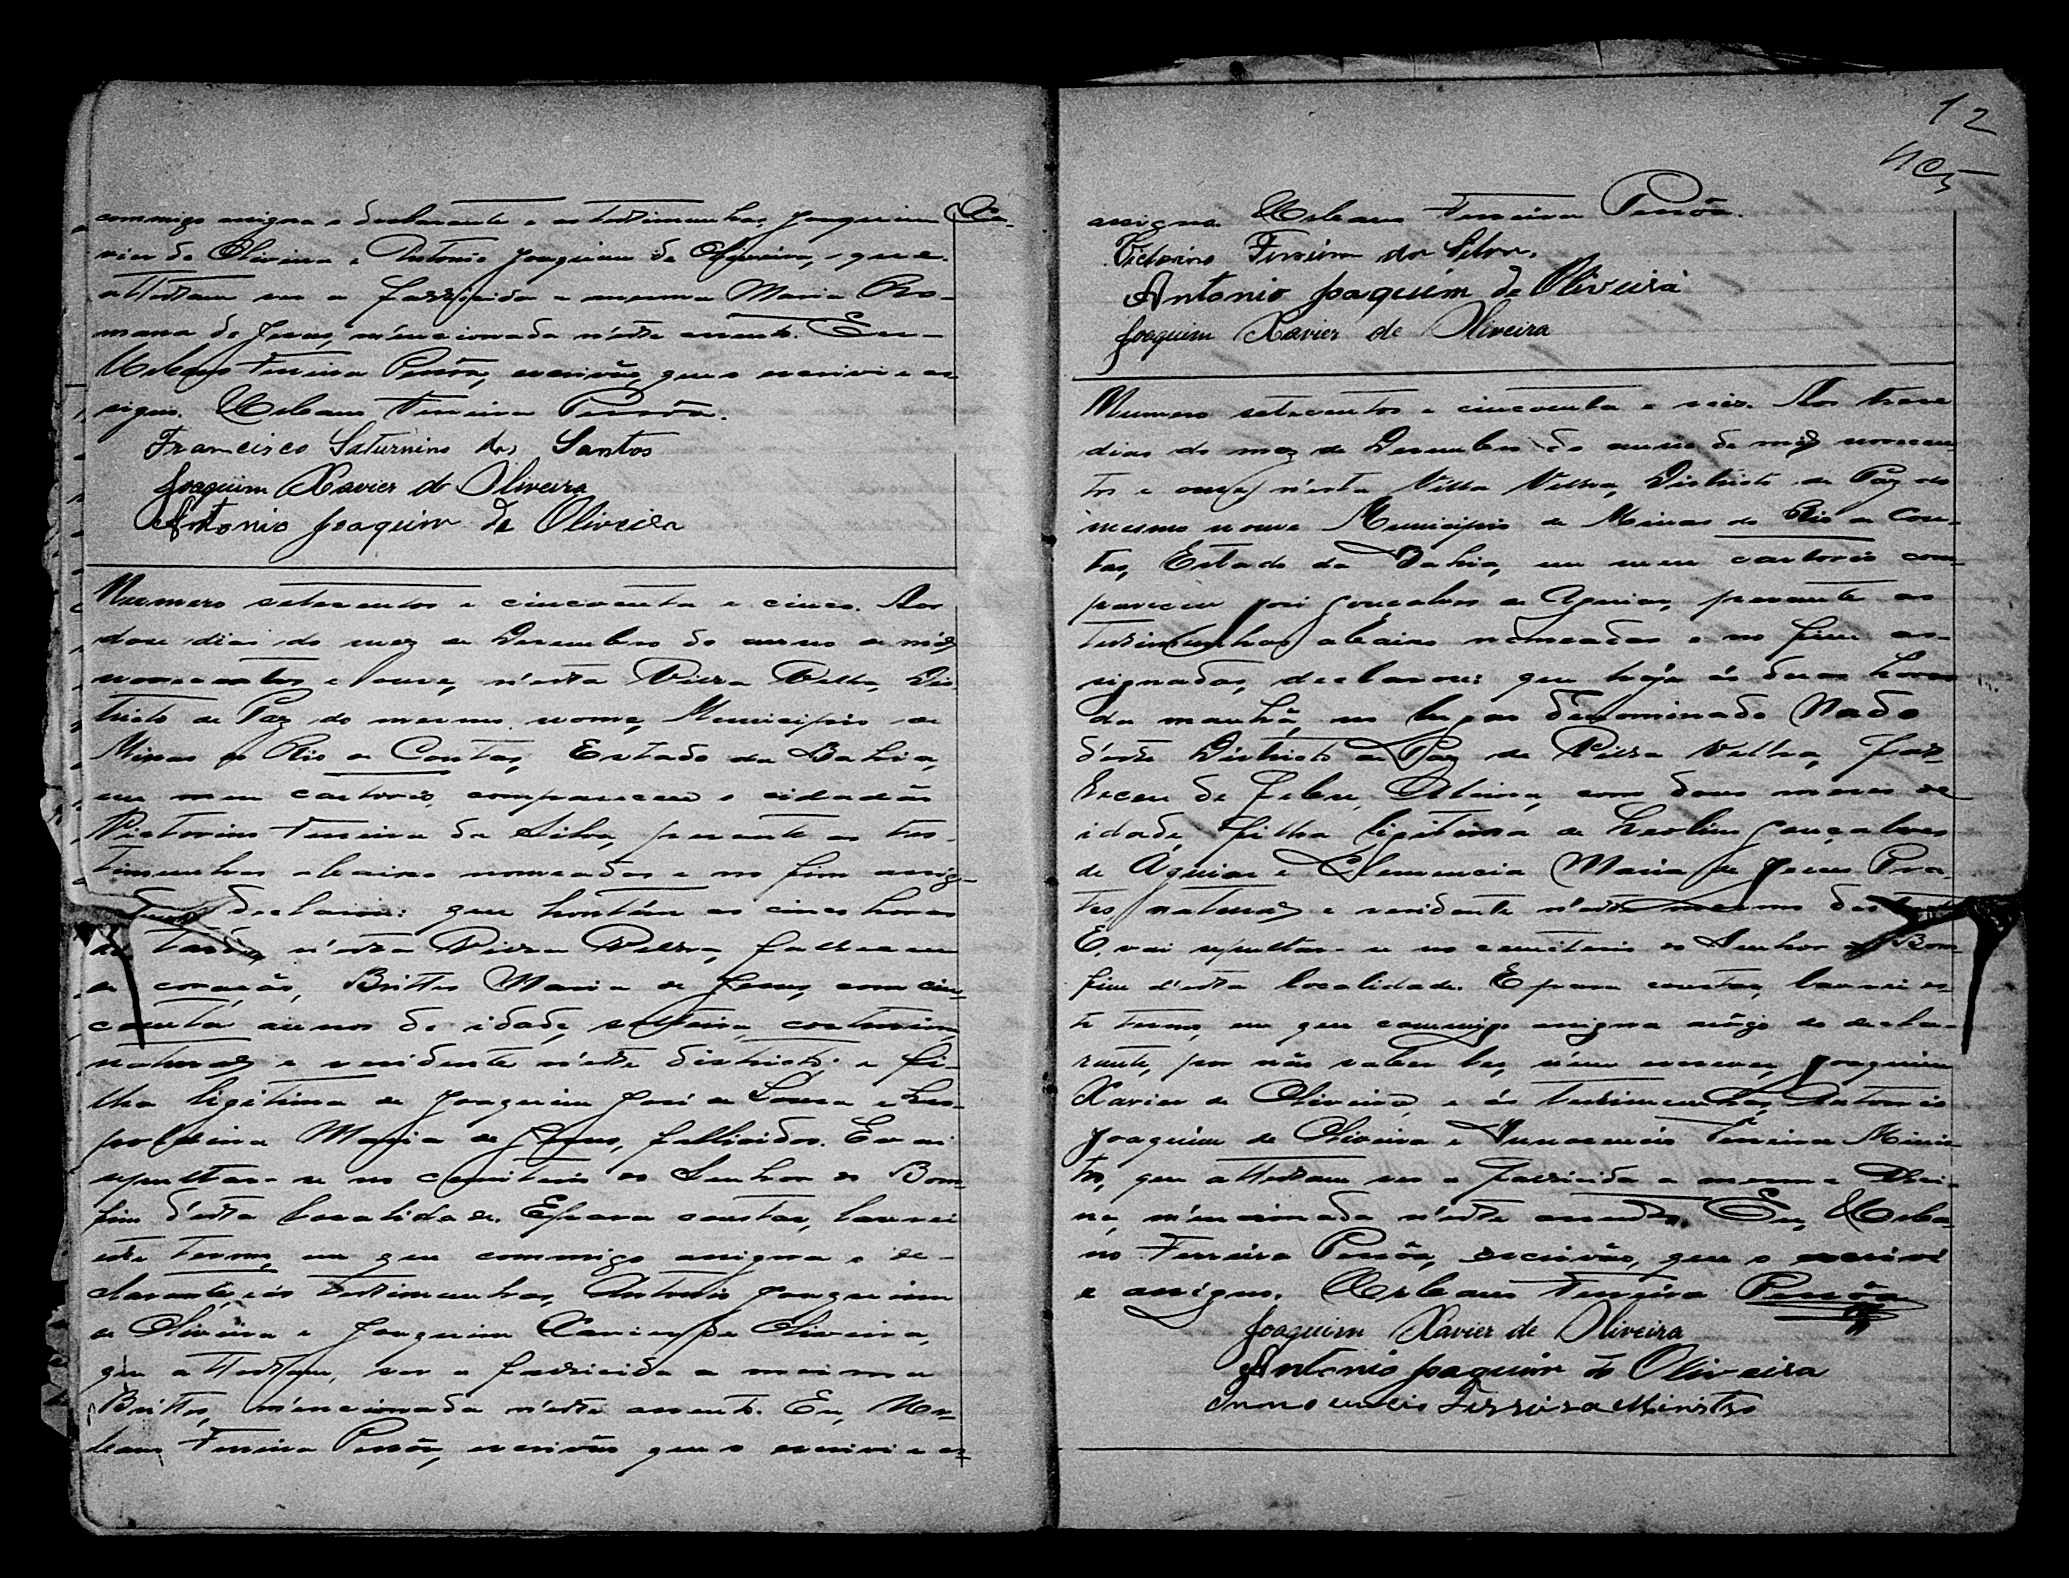 commigo assigna o declarante e as testimunhas, Joaquim Xa-
vier de Oliveira e Antonio Joaquim de Oliveira, que
attestam ser a fallecida a mesma Maria Ro-
mana de Jesus, mencionada n'este assento. Eu
Urbano Ferreira Pessôa, escrivão, que o escrivi e as-
signo. Urbano Ferreira Pessôa.
Francisco Saturnino dos Santos
Joaquim Xavier de Oliveira
Antonio Joaquim de Oliveira
Numero setecentos e cincoenta e cinco. Aos
dose dias do mez de Desembro do anno de mil
novecentos e onze, n'esta Villa Velha, Dis-
tricto de Paz do mesmo nome, Municipio de
Minas do Rio de Contas, Estado da Bahia,
em meu cartorio, compareceu o cidadão
Victorino Ferreira da Silva, perante as tes-
timunhas abaixo nomeadas e no fim assig-
nadas, declarou: que hontém as cinco horas
da tarde, n'esta Villa Velha, falleceu
de coração, Brittes Maria de Jesus, com cin-
coenta annos de idade, solteira, costureira,
natural e residente n'este districto e fi-
lha legitima de Joaquim José de Sousa e Leo-
poldina Maria de Jesus, fallecidos. E vai
sepultar-se no cemiterio do Senhor do Bom-
fim d'esta localidade. E para constar, lavrei
este termo, em que commigo assigna o de-
clarante e as testimunhas, Antonio Joaquim
de Oliveira e Joaquim Xavier de Oliveira,
que attestam, ser a fallecida a mesma
Brittes, mencionada n'este assento. Eu, Ur-
bano Ferreira Pessôa, escrivão que o escrivi e as-
12
assigno. Urbano Ferreira Pessôa.
Victorino Ferreira da Silva.
Antonio Joaquim de Oliveira
Joaquim Xavier de Oliveira
Numero setecentos e cincoenta e seis. Aos treze
dias do mez de Desembro do anno de mil novecen-
tos e onze, n'esta Villa Velha, Districto de Paz do
mesmo nome Municipio de Minas do Rio de Con-
tas, Estado da Bahia, em meu cartorio com-
pareceu José Gonçalves de Aguiar, perante as
testimunhas abaixo nomeadas e no fim as-
signadas, declarou: que hoje ás duas horas
da manhã, no lugar denominado Nado
d'este Districto de Paz de Villa Velha, fal-
leceu de febre, Albina, com dous meses de
idade, filha legitima de Leolino Gonçalves
de Aguiar e Clemencia Maria de Jesus Pra-
tes, natural e residente n'este mesmo destricto
E, vai sepultar-se no cemiterio do Senhor do Bom-
fim d'esta localidade. E para constar, lavrei es-
te termo, em que commigo assigna a rôgo do decla-
rante, por não saber ler, nem escrever, Joaquim
Xavier de Oliveira, e ás testimunhas, Antonio
Joaquim de Oliveira e Innocencio Ferreira Minis-
tro, que attestam ser a fallecida a mesma Albi-
na, mencionada n'este assento. Eu, Urba-
no Ferreira Pessôa, escrivão, que o escrivi
e assigno. Urbano Ferreira Pessôa
Joaquim Xavier de Oliveira
Antonio Joaquim de Oliveira
Innocencio Ferreira Ministro